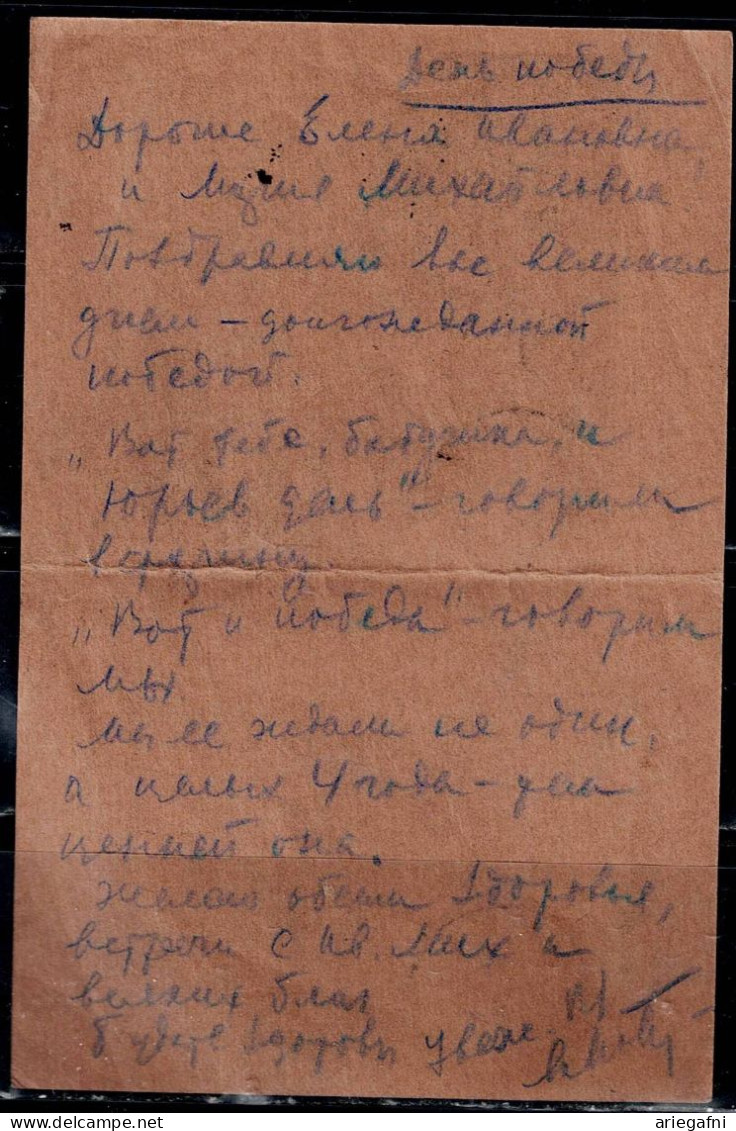 День победы
Дорогие Елена Ивановна
и Михайловна
Поздравляю вас великим
днем – долгожданной
победой.
„Вот тебе, бабушка, и
Юрьев день" – говорили
„Вот и победа" – говорим
мы.
Мы ее ждали не один,
а целых 4 года –
ценней она.
Желаю обеим здоровья,
встречи с Ив. Мих и
всяких благ
Будьте здоровы Уваж.
ariegafni